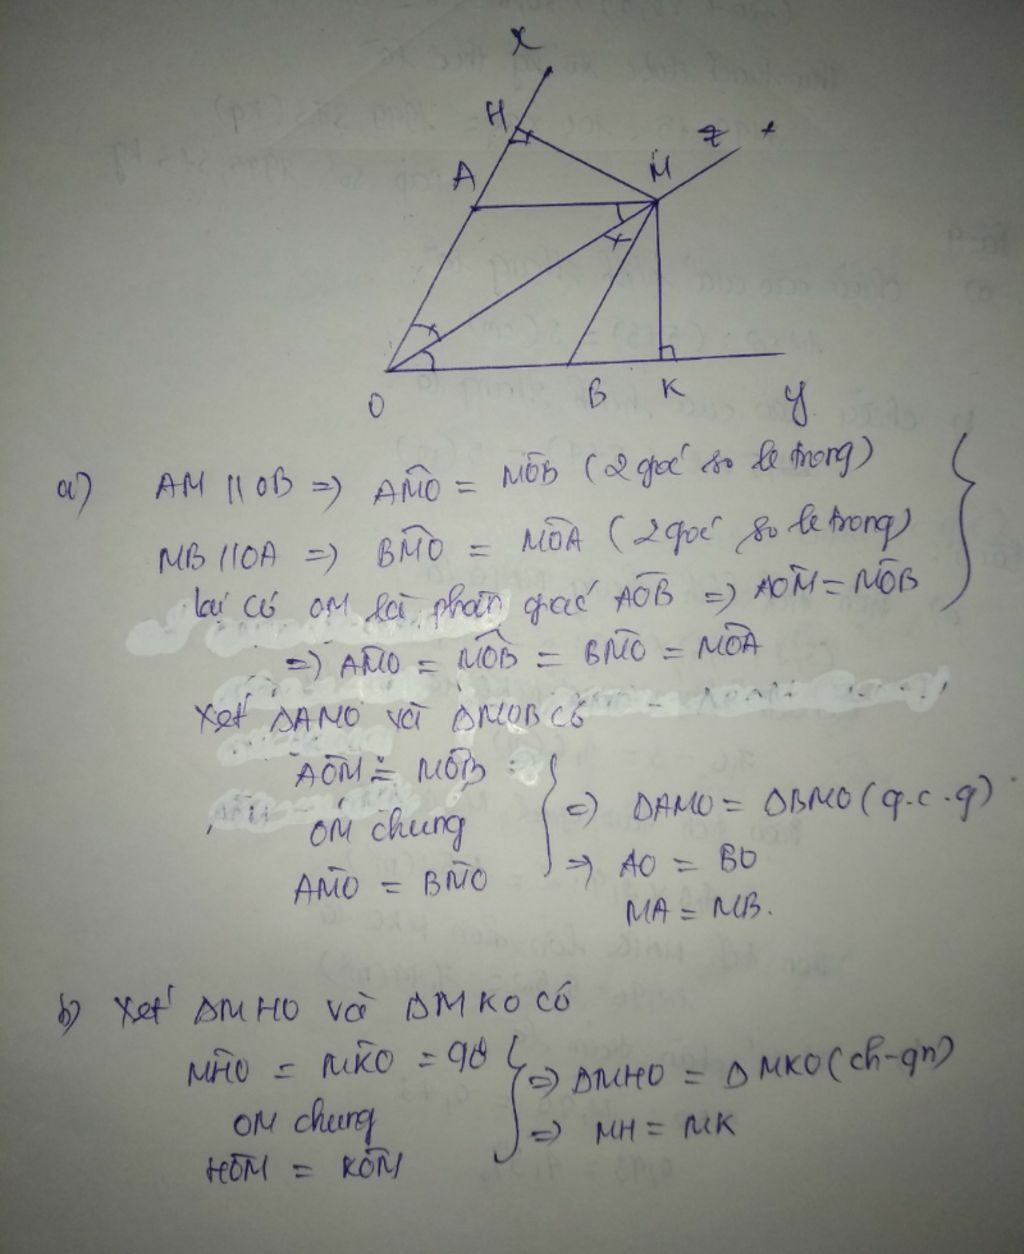 x
H
A
M
z
O
B
K
y
a) AM // OB => AM̂O = MÔB (2 góc so le trong)
MB // OA => BM̂O = MÔA (2 góc so le trong)
lại có OM là phân giác AÔB => AÔM = MÔB
=> AM̂O = MÔB = BM̂O = MÔA
Xét ΔAMO và ΔMOB có
AÔM = MÔB
OM chung
AM̂O = BM̂O
=> ΔAMO = ΔBMO (g.c.g)
=> AO = BO
MA = MB.
b) Xét ΔMHO và ΔMKO có
MĤO = MK̂O = 90
OM chung
HÔM = KÔM
=> ΔMHO = ΔMKO (ch-gn)
=> MH = MK